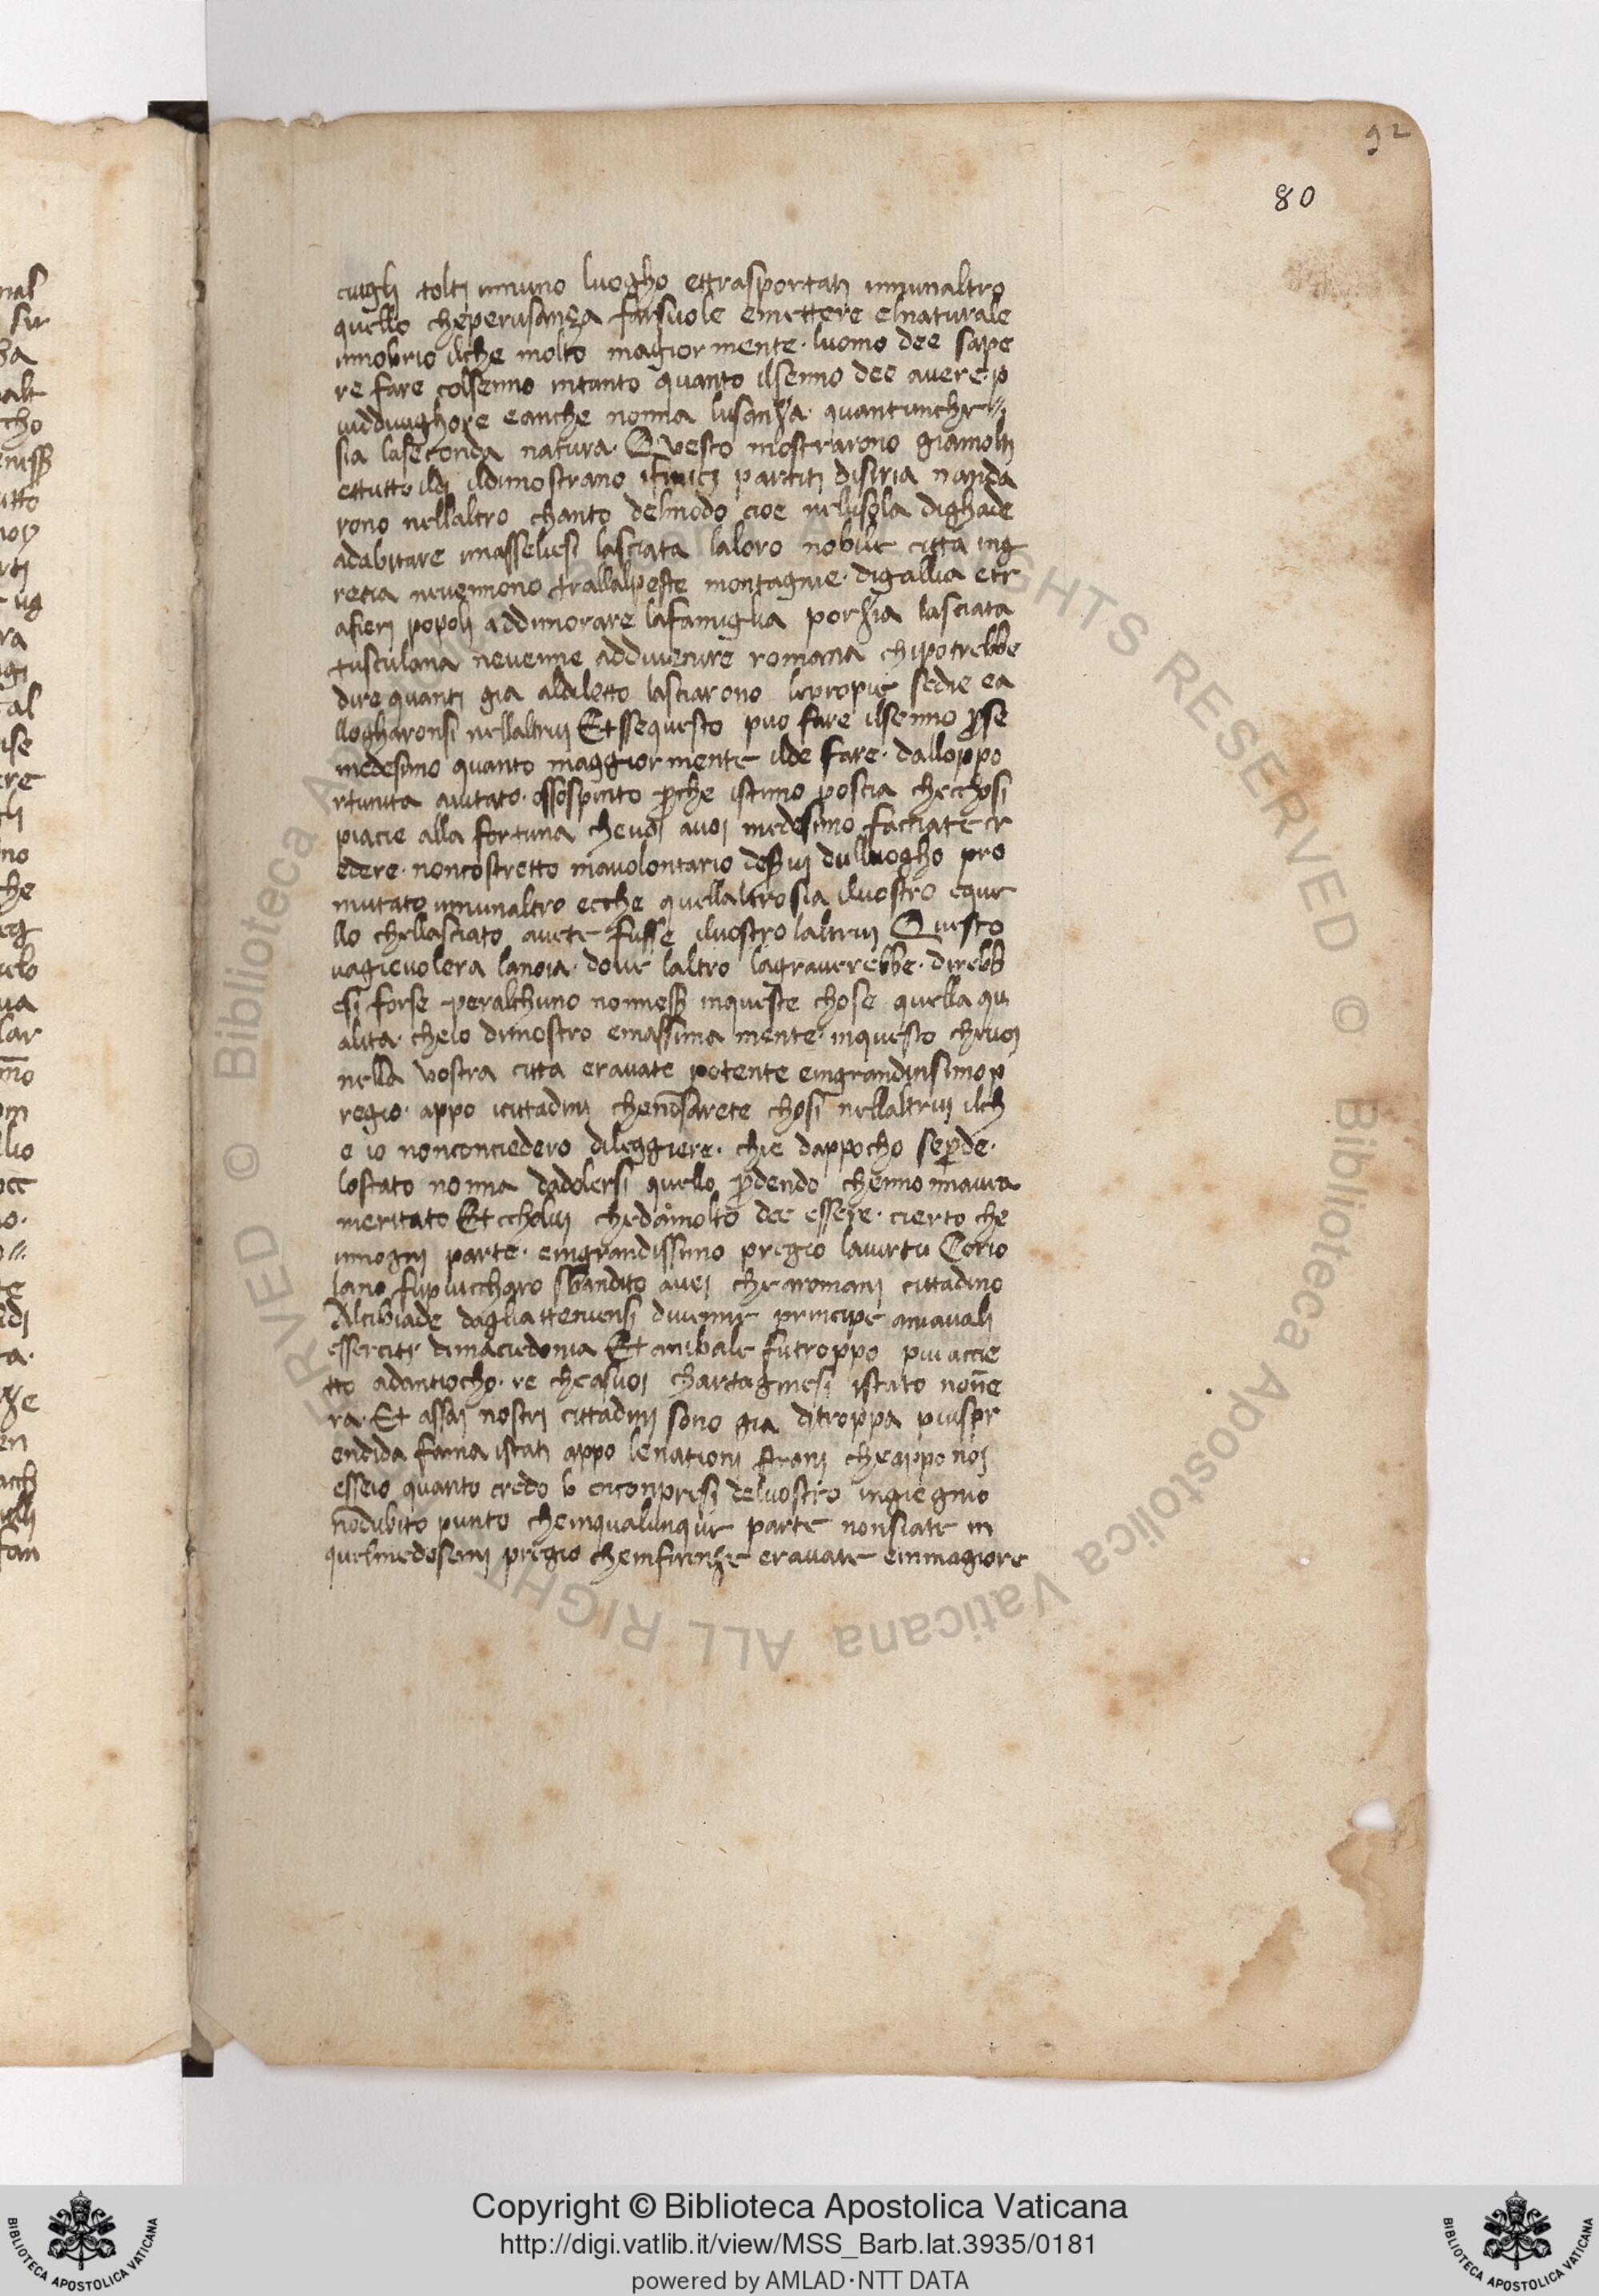 92
80
cugli tolti innuno luogho ettrasportati innunaltro
quello cheperusanza farsuole emettere elnaturale
innobrio ilche molto magiormente· luomo dee sape
re fare colsenno intanto quanto ilsenno dee avere· p
eanche nonna lusanza· quantunche
sia laseconda natura· Questo mostrarono giamolti
ettutto ildi ildimostrano ifenici partiti disiria nanda
rono nellaltro chanto delmodo cioe nelisola dighade
adabitare imasseliesi lasciata laloro nobile citta ing
recia nevennono trallalpeste montagnie· digallia etr
afieri popoli addimorare lafamiglia porzia lasciata
tusculana nevenne addivenire romana chipotrebbe
dire quanti gia aldiletto lasciarono lepropie sedie ea
llogharonsi nellaltrui Etssequesto puo fare ilsenno p̱se
medesimo quanto maggiormente ilde fare· dalloppo
rtunita aiutato· ossospinto p̱che istimo poscia checchosi
piacie alla fortuna chevoi avoi medesimo facciate cr
edere· noncostretto mavolontario delluogho pro
mutato innunaltro ecche quellaltrosia ilvostro eque
llo chellasciato avete fusse ilvostro laltrui Questo
vagievolera lanoia· dove laltro lagraverebbe· direbb
esi forse peralchuno nonness inqueste chose quella qu
alita· cheio dimostro emassima mente· inquesto chevoi
nella vostra citta eravate potente eingrandinsimo p
regio· appo icittadini chen̄osarete chosi nellaltrui ilch
e io nonconciedero dileggiere· chie dappocho sep̱de·
lostato nonna dadolersi quello p̱dendo chenno nnavia
meritato Etccholui chedamolto dee essere· cierto che
innogni parte· eingrandissimo pregio lavirtu Corio
lano fupiuccharo sbandito avei chearomani cittadino
Alcibiade dagliatteniensi divenne principe aniavali
esserciti dimaciedonia Et anibale futroppo piu accie
tto adantiocho· re cheasuoi chartaginesi istato non̄e
ra· Et assai nostri cittadini sono gia ditroppa piuspr
endida fama istati appo lenationi strani cheappo noi
esseio quanto credo b encompresi delvostro ingiegnio
nōdubito punto cheinqualunque parte nonsiate in
quelmedesimi pregio cheinfirenze eravate einmagiore
Copyright © Biblioteca Apostolica Vaticana
http://digi.vatlib.it/view/MSS_Barb.lat.3935/0181
powered by AMLAD·NTT DATA
BIBLIOTECA APOSTOLICA VATICANA
BIBLIOTECA APOSTOLICA VATICANA